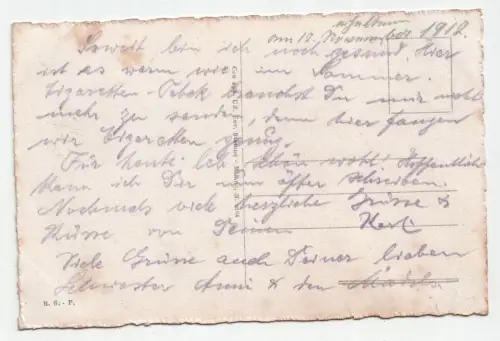 erhalten
am 10. November 1912.
Soweit bin ich noch gesund. Hier
ist es warm wie im Sommer.
Cigaretten Tabak brauchst Du mir nicht
mehr zu senden, denn hier fangen
wir Cigaretten genug.
Für heute leb schön wohl! Hoffentlich
kann ich Dir nun öfter schreiben.
Nochmals viele herzliche Grüsse &
Küsse von Deinem Karl
Viele Grüsse auch Deiner lieben
Schwester Anni & den Mädels.
R. G. - P.